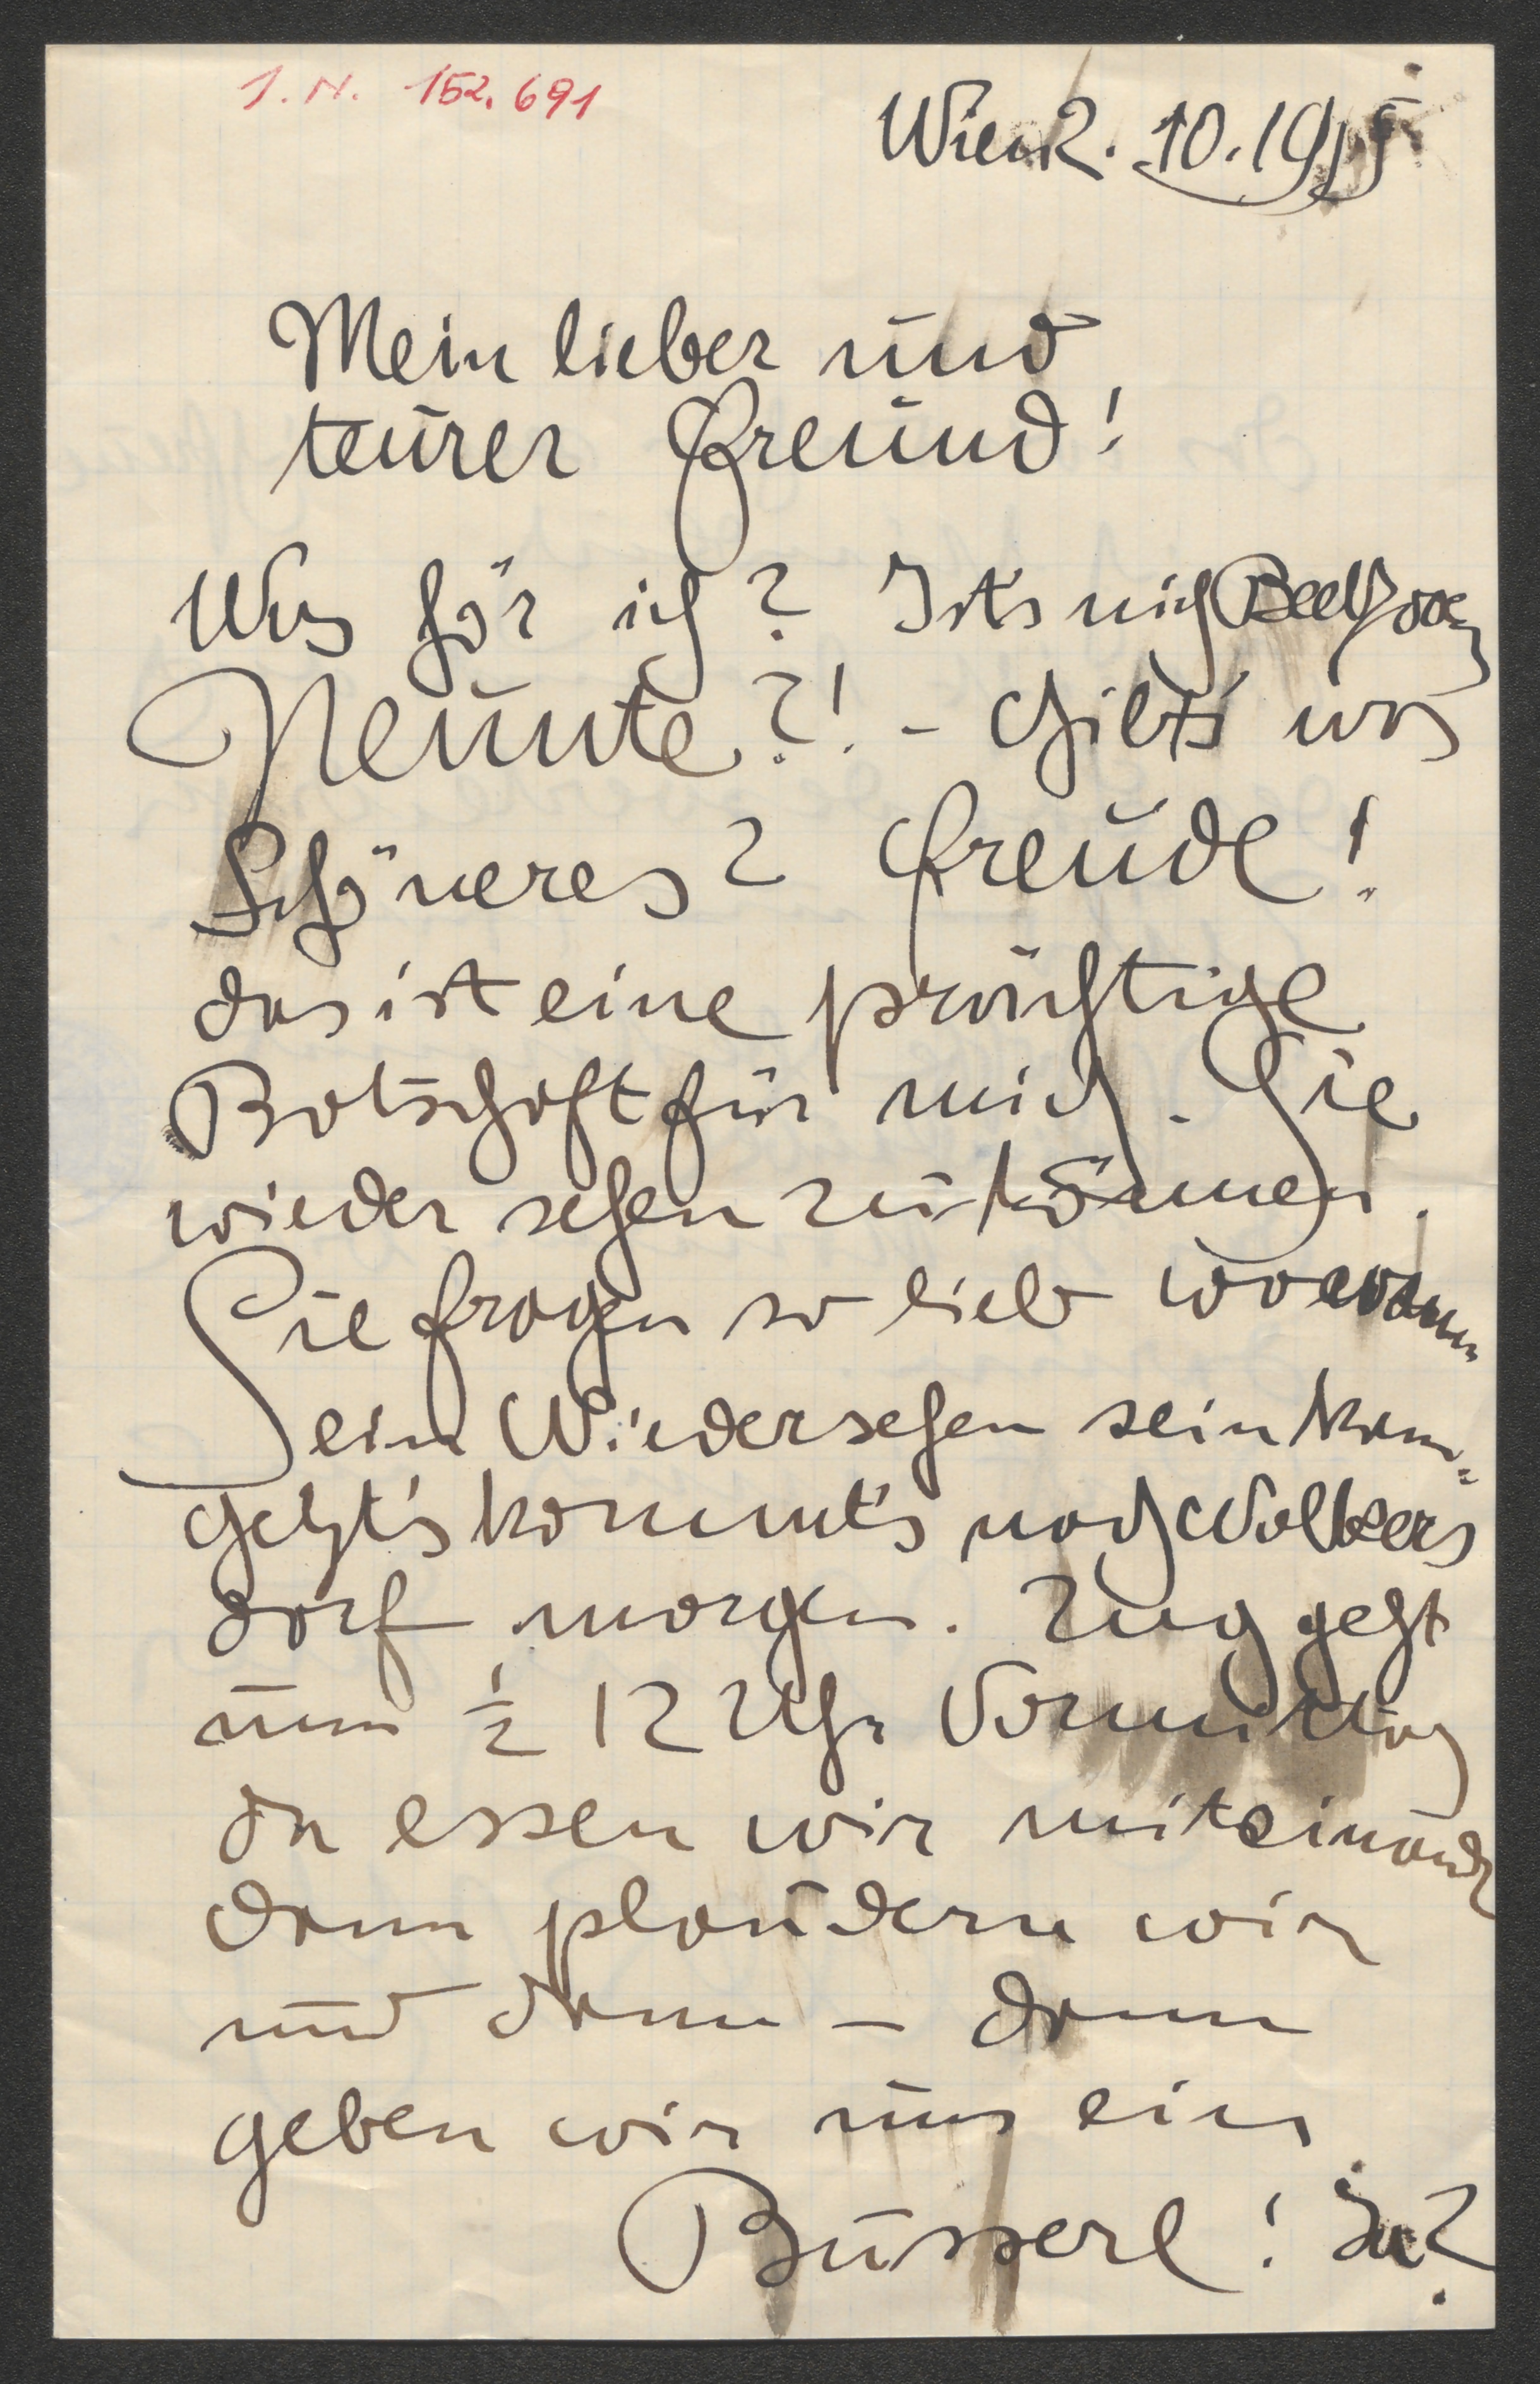 J. N. 152.691
Wien 2. 10. 1915
Mein lieber und
teurer Freund!
Was hör ich? Ist's nicht Beethovens
Neunte?! - Gibts was
Schöneres? Freude!
das ist eine prächtige
Botschaft für mich. Sie
wieder sehen zu können.
Sie fragen so lieb wo wann
ein Wiedersehen sein kann.
geht's kommt's nach Wolkers
dorf morgen. Zug geht
um ½ 12 Uhr Vormittag
da essen wir miteinander
dann plaudern wir
und dann - dann
geben wir uns ein
Busserl! Ja?